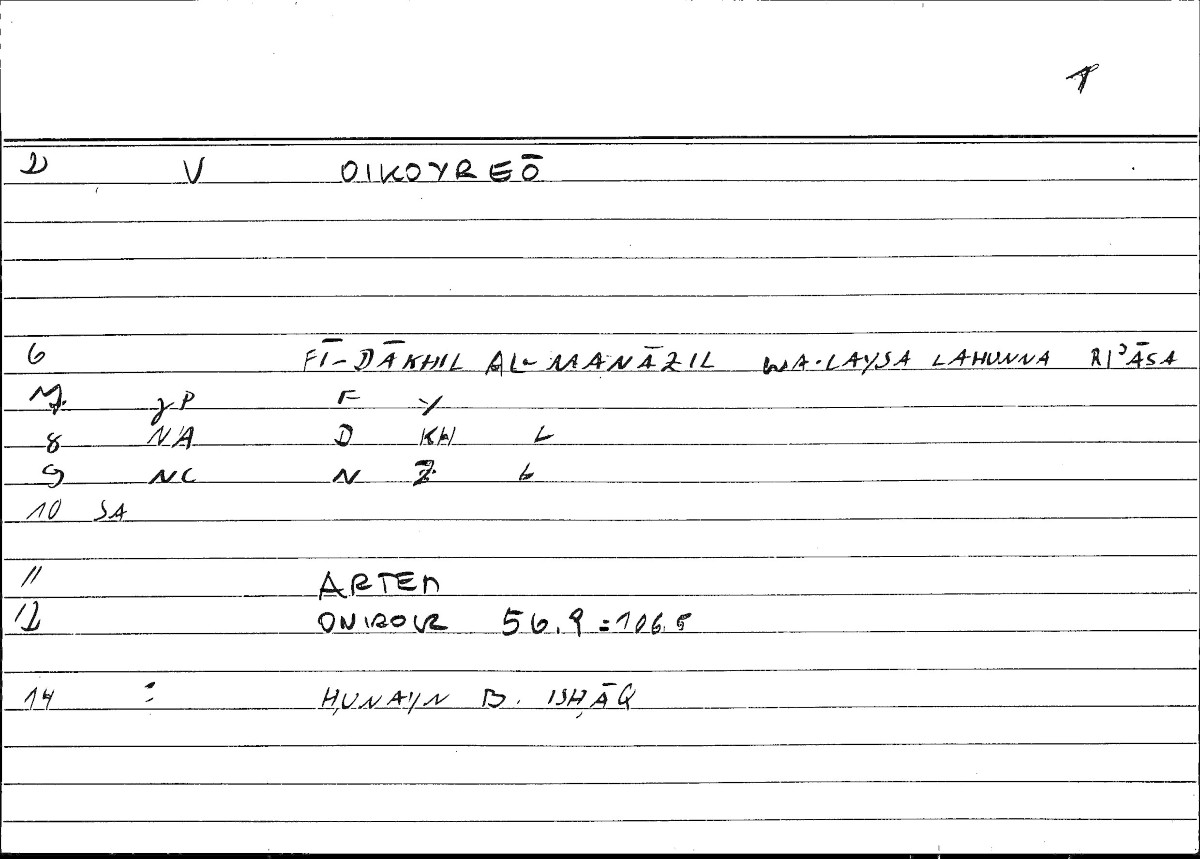 1
2 V OIKOYREŌ
6 FĪ-DĀKHIL AL-MANĀZIL WA-LAYSA LAHUNNA RIʾĀSA
7 γP F Y
8 NA D KH L
9 NC N Z L
10 SA
11 ARTEM
12 ONIROCR 56.9 = 106.5
14 : ḤUNAYN B. ISḤĀQ